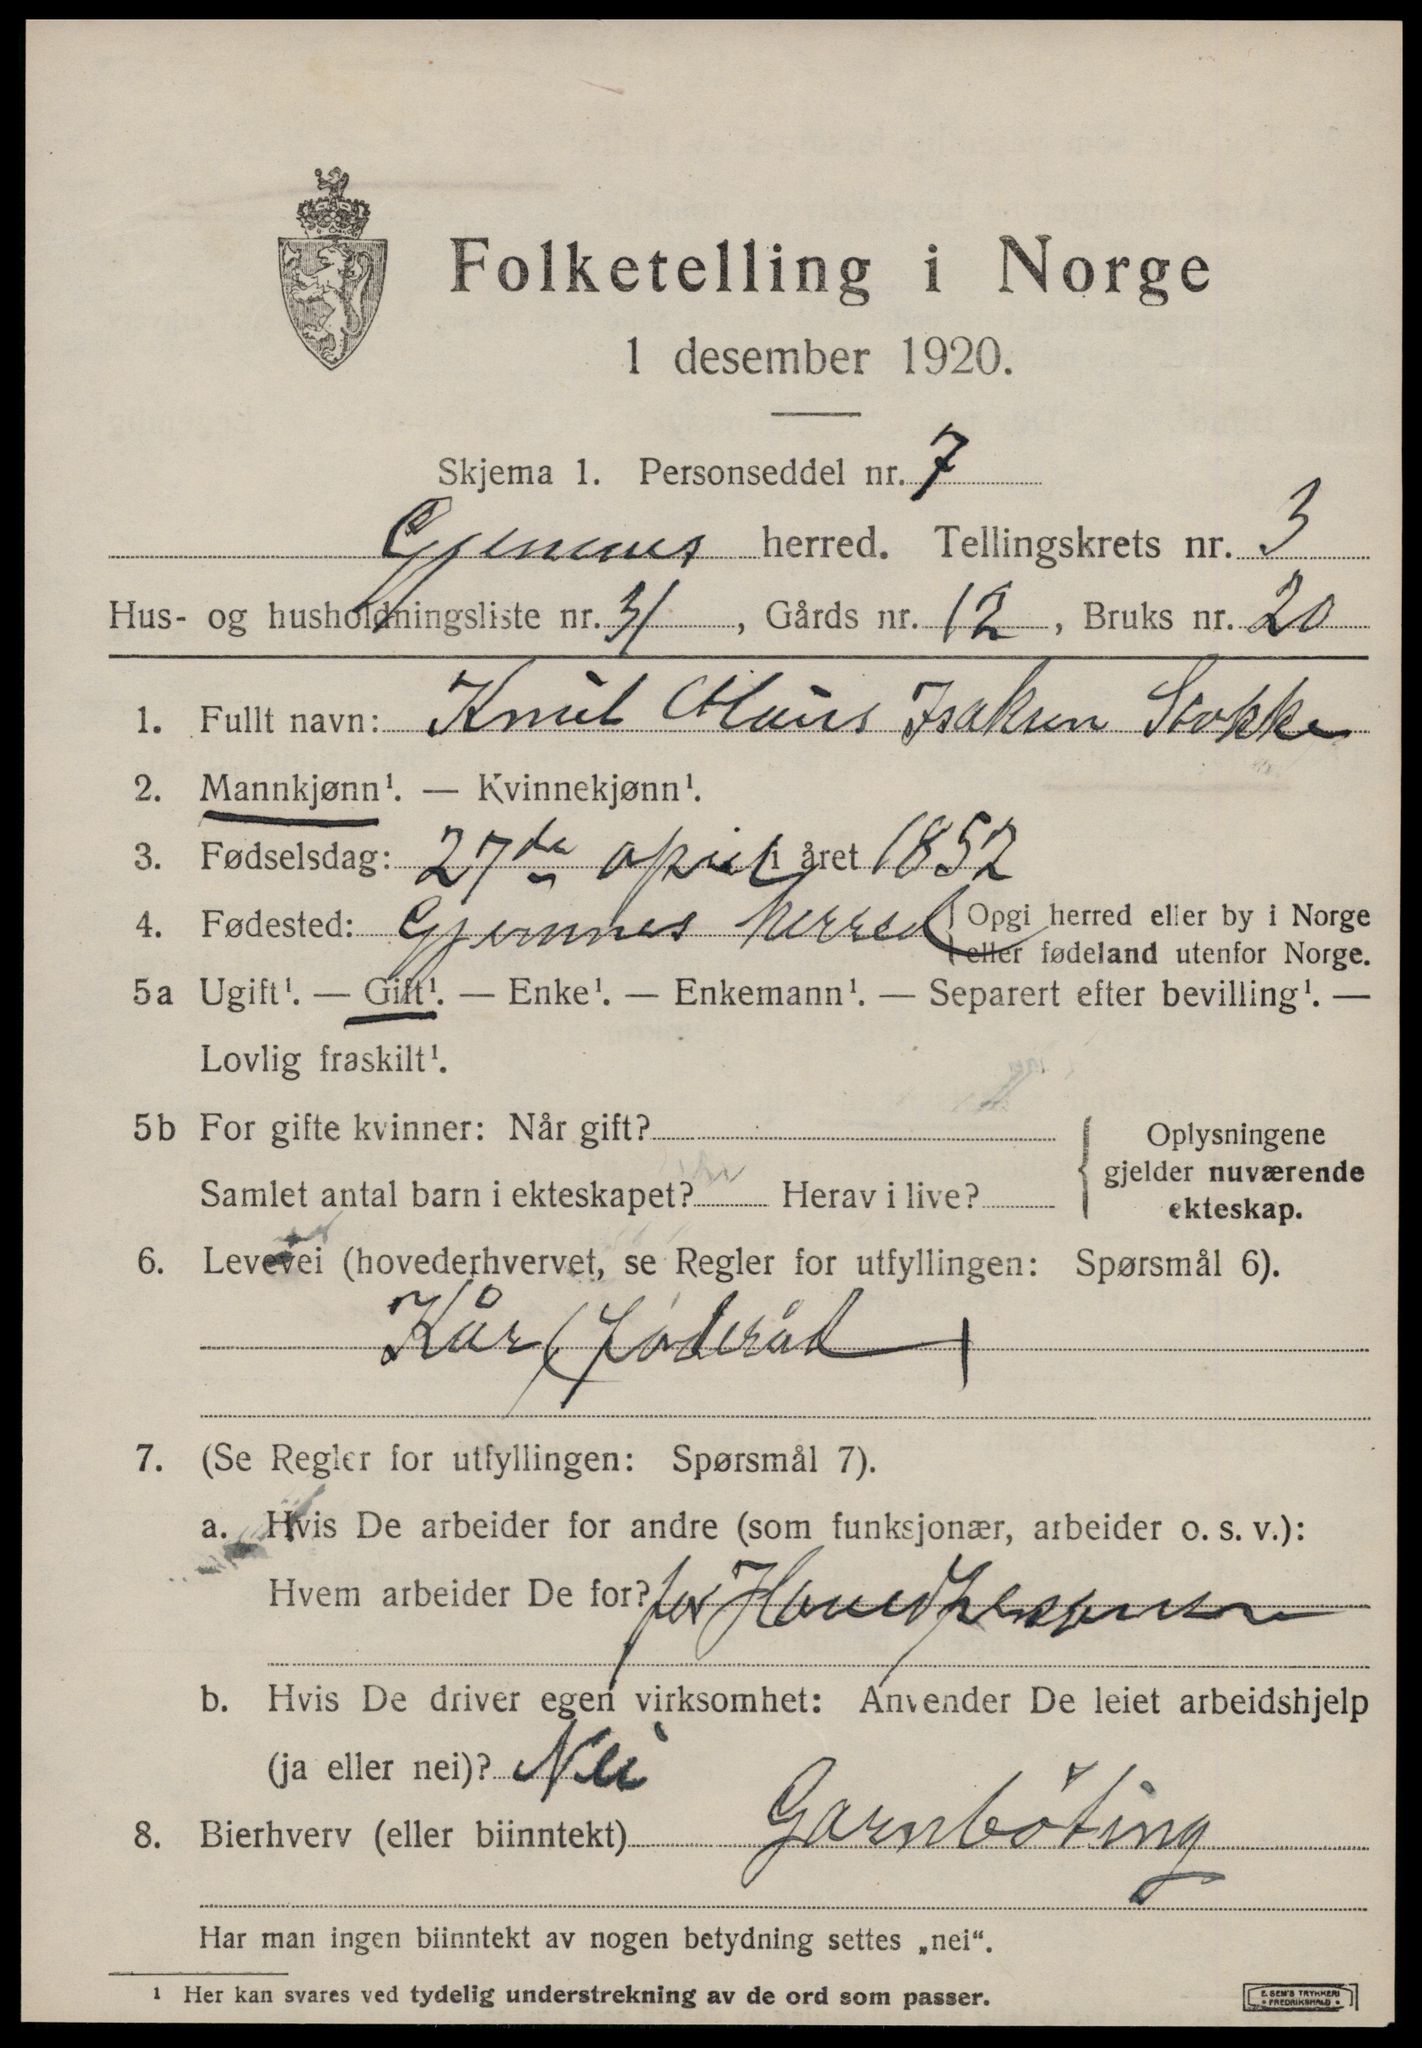 Folketelling i Norge
1 desember 1920.
Skjema 1. Personseddel nr. 7
Gjemnes herred. Tellingskrets nr. 3
Hus- og husholdningsliste nr. 31, Gårds nr. 12, Bruks nr. 20
1. Fullt navn: Knut Isaksen Stokke
2. Mannkjønn¹. — Kvinnekjønn¹.
3. Fødselsdag: 27de april i året 1852
4. Fødested: Gjemnes herred { Opgi herred eller by i Norge
eller fødeland utenfor Norge.
5a Ugift¹. — Gift¹. — Enke¹. — Enkemann¹. — Separert efter bevilling¹. —
Lovlig fraskilt¹.
5b For gifte kvinner: Når gift?
Samlet antal barn i ekteskapet? Herav i live?
{ Oplysningene
gjelder nuværende
ekteskap.
6. Levevei (hovederhvervet, se Regler for utfyllingen: Spørsmål 6).
Kår (föderåd)
7. (Se Regler for utfyllingen: Spørsmål 7).
a. Hvis De arbeider for andre (som funksjonær, arbeider o. s. v.):
Hvem arbeider De for? for Hovedpersonen
b. Hvis De driver egen virksomhet: Anvender De leiet arbeidshjelp
(ja eller nei)? Nei
8. Bierhverv (eller biinntekt) Garnböting
Har man ingen biinntekt av nogen betydning settes „nei“.
¹ Her kan svares ved tydelig understrekning av de ord som passer.
E. SEM'S TRYKKERI
FREDRIKSHALD